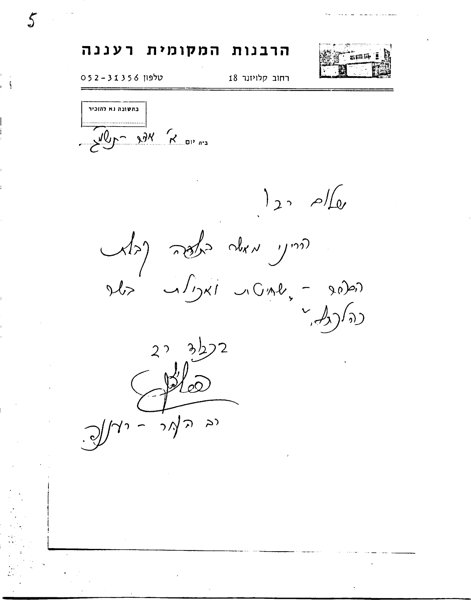 5
הרבנות המקומית רעננה
רחוב קלויזנר 18 טלפון 052-31356
בתשובה נא להזכיר
בית יום א' אדר - תשמ"ג
שלום רב!
הריני מאשר בתודה קבלת
הספר - "שחיטת ואכילת בשר
כהלכתו"
בכבוד רב
רב העיר - רעננה